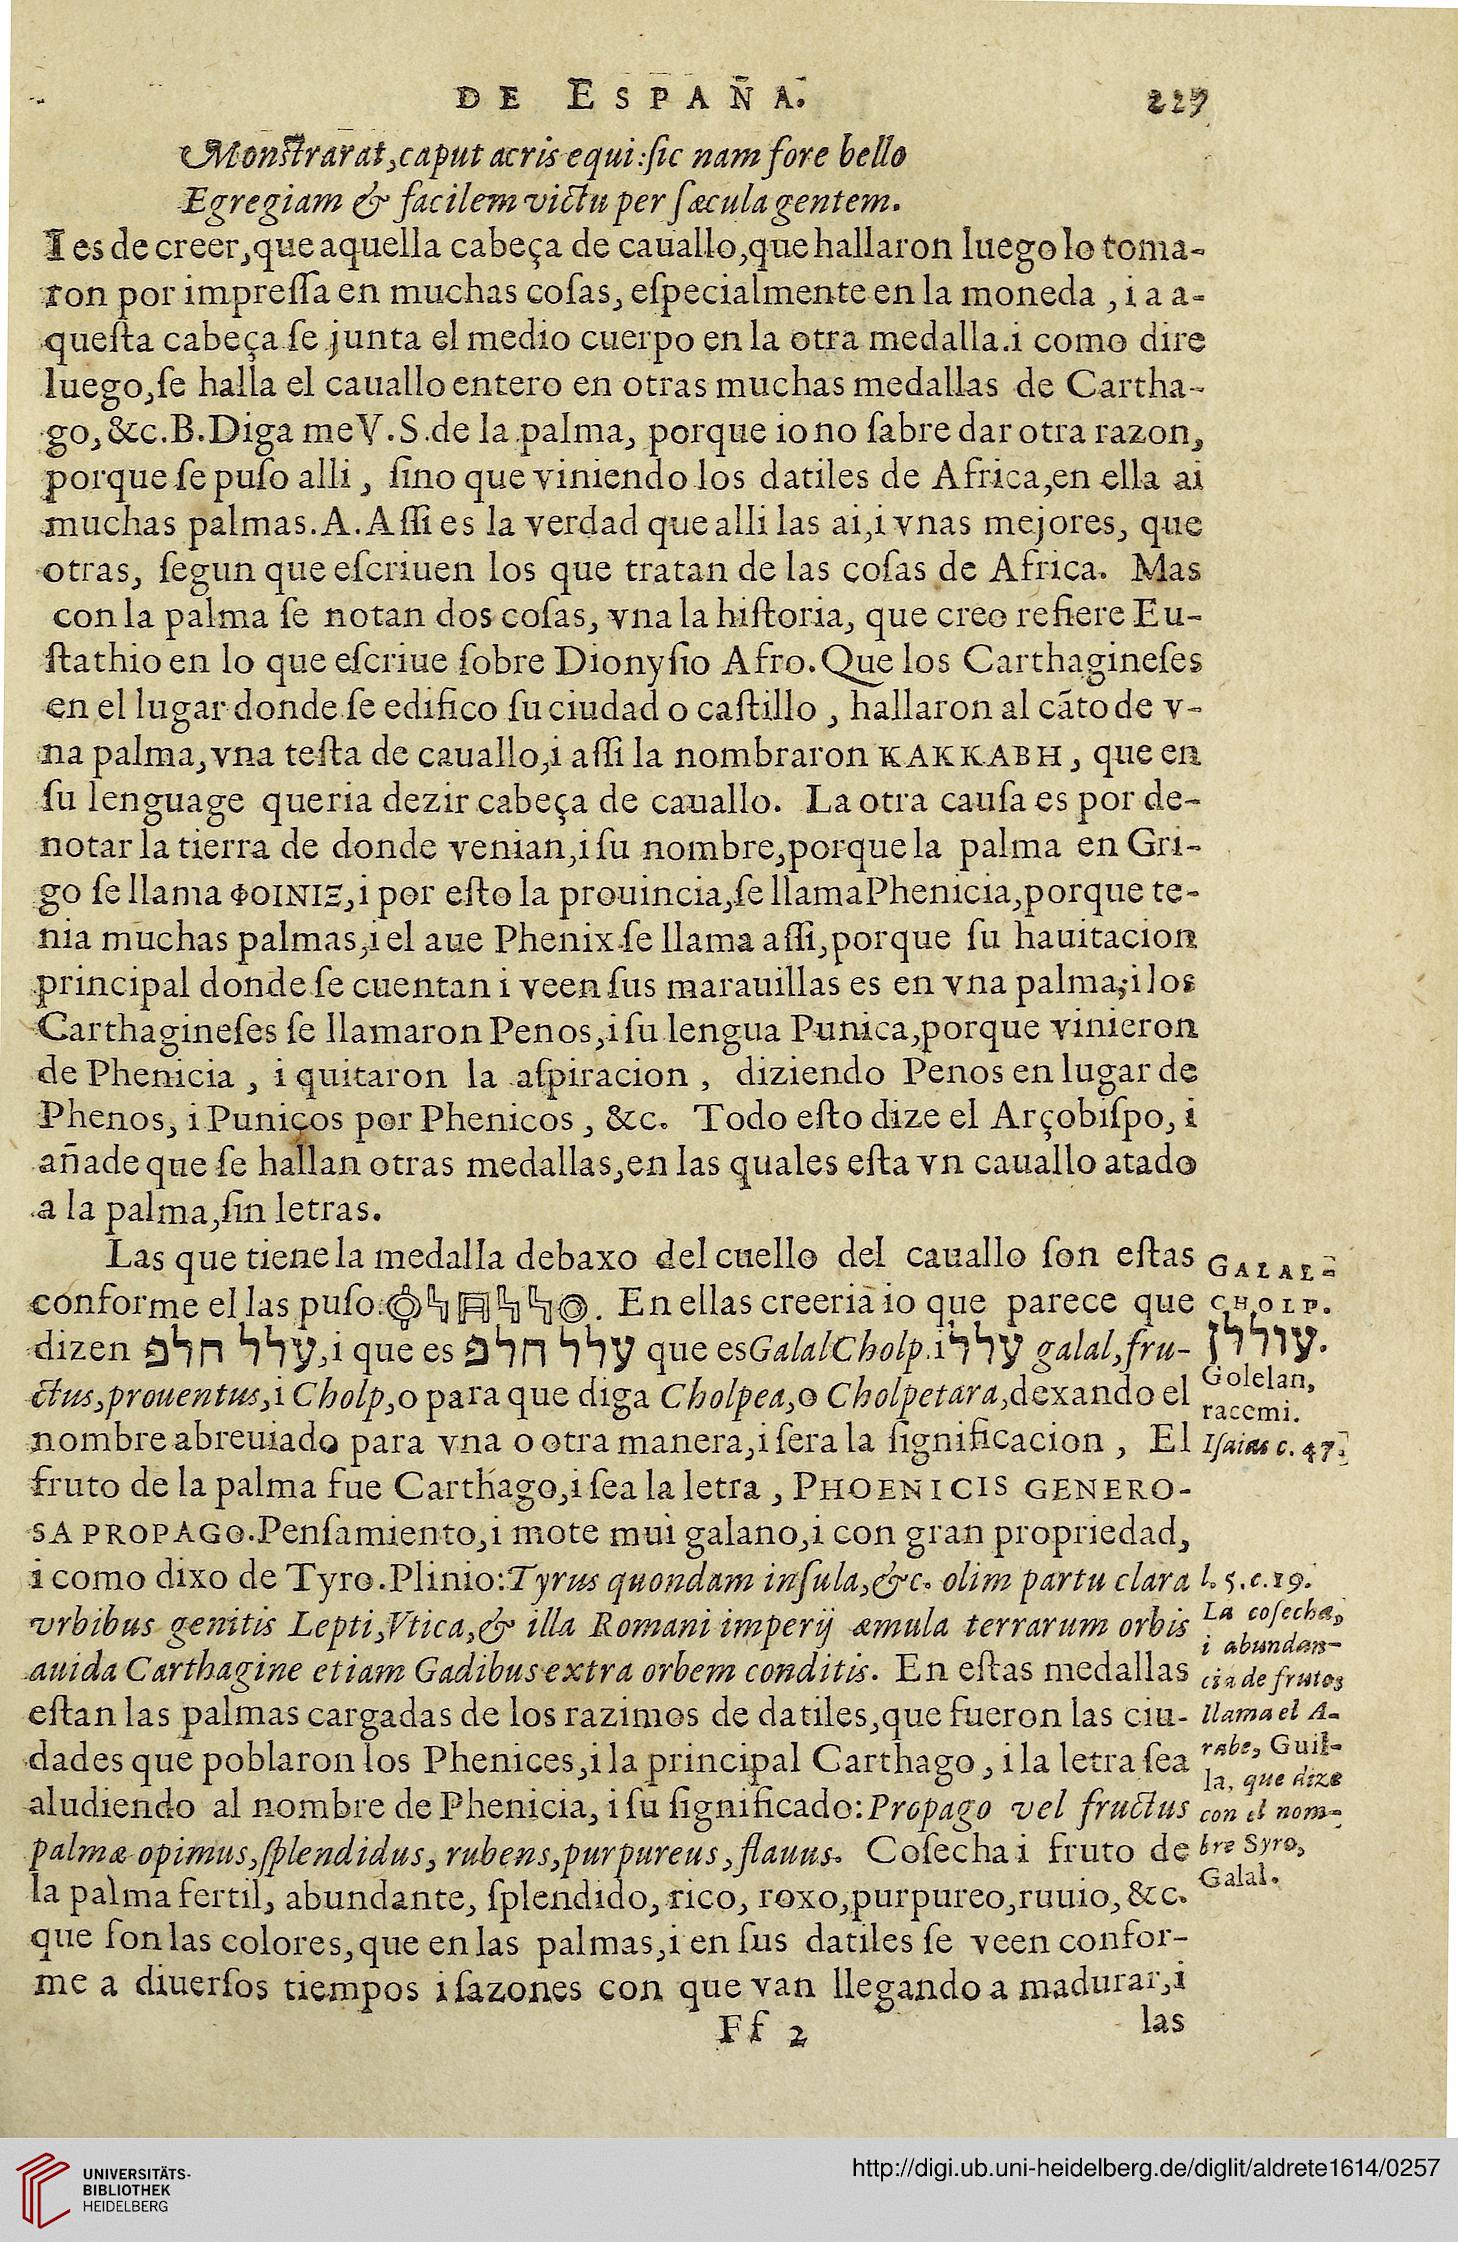 DE ESPAÑA. 227
Monſtrarat, caput acris equi: ſic nam fore bello
Egregiam & facilem victu per ſæcula gentem.
I es de creer, que aquella cabeça de cauallo, que hallaron luego lo toma-
ron por impreſſa en muchas coſas, eſpecialmente en la moneda, i a a-
queſta cabeça ſe junta el medio cuerpo en la otra medalla. i como dire
luego, ſe halla el cauallo entero en otras muchas medallas de Cartha-
go, &c. B. Diga me V. S. de la palma, porque io no ſabre dar otra razon,
porque ſe puſo alli, ſino que viniendo los datiles de Africa, en ella ai
muchas palmas. A. Aſſi es la verdad que alli las ai, i vnas mejores, que
otras, ſegun que eſcriuen los que tratan de las coſas de Africa. Mas
con la palma ſe notan dos coſas, vna la hiſtoria, que creo refiere Eu-
ſtathio en lo que eſcriue ſobre Dionyſio Afro. Que los Carthagineſes
en el lugar donde ſe edifico ſu ciudad o caſtillo, hallaron al cãto de v-
na palma, vna teſta de cauallo, i aſſi la nombraron ΚΑΚΚΑΒΗ, que en
ſu lenguage queria dezir cabeça de cauallo. La otra cauſa es por de-
notar la tierra de donde venian, i ſu nombre, porque la palma en Gri-
go ſe llama ΦΟΙΝΙΞ, i por eſto la prouincia, ſe llama Phenicia, porque te-
nia muchas palmas, i el aue Phenix ſe llama aſſi, porque ſu hauitacion
principal donde ſe cuentan i veen ſus marauillas es en vna palma, i los
Carthagineſes ſe llamaron Penos, i ſu lengua Punica, porque vinieron
de Phenicia, i quitaron la aſpiracion, diziendo Penos en lugar de
Phenos, i Puniços por Phenicos, &c. Todo eſto dize el Arçobiſpo, i
añade que ſe hallan otras medallas, en las quales eſta vn cauallo atado
a la palma, ſin letras.
Las que tiene la medalla debaxo del cuello del cauallo ſon eſtas
conforme el las puſo. En ellas creeria io que parece que
dizen עלל חלפ, i que es עלל חלפ que es Galal Cholp. i עלל galal, fru-
ctus, prouentus, i Cholp, o para que diga Cholpea, o Cholpetara, dexando el
nombre abreuiado para vna o otra manera, i ſera la ſignificacion, El
fruto de la palma fue Carthago, i ſea la letra, PHOENICIS GENERO-
SA PROPAGO. Penſamiento, i mote mui galano, i con gran propriedad,
i como dixo de Tyro. Plinio: Tyrus quondam inſula, &c. olim partu clara
vrbibus genitis Lepti, Vtica, & illa Romani imperij æmula terrarum orbis
auida Carthagine etiam Gadibus extra orbem conditis. En eſtas medallas
eſtan las palmas cargadas de los razimos de datiles, que fueron las ciu-
dades que poblaron los Phenices, i la principal Carthago, i la letra ſea
aludiendo al nombre de Phenicia, i ſu ſignificado: Propago vel fructus
palmæ opimus, ſplendidus, rubens, purpureus, flauus. Coſecha i fruto de
la palma fertil, abundante, ſplendido, rico, roxo, purpureo, ruuio, &c.
que ſon las colores, que en las palmas, i en ſus datiles ſe veen confor-
me a diuerſos tiempos i ſazones con que van llegando a madurar, i
Ff 2 las
GALAL-
CHOLP.
עוללן.
Golelan,
racemi.
Iſaias c. 47.
l. 5. c. 19.
La coſecha,
i abundan-
cia de frutos
llama el A-
rabe, Guil-
la, que dize
con el nom-
bre Syro,
Galal.
UNIVERSITÄTS-
BIBLIOTHEK
HEIDELBERG
http://digi.ub.uni-heidelberg.de/diglit/aldrete1614/0257